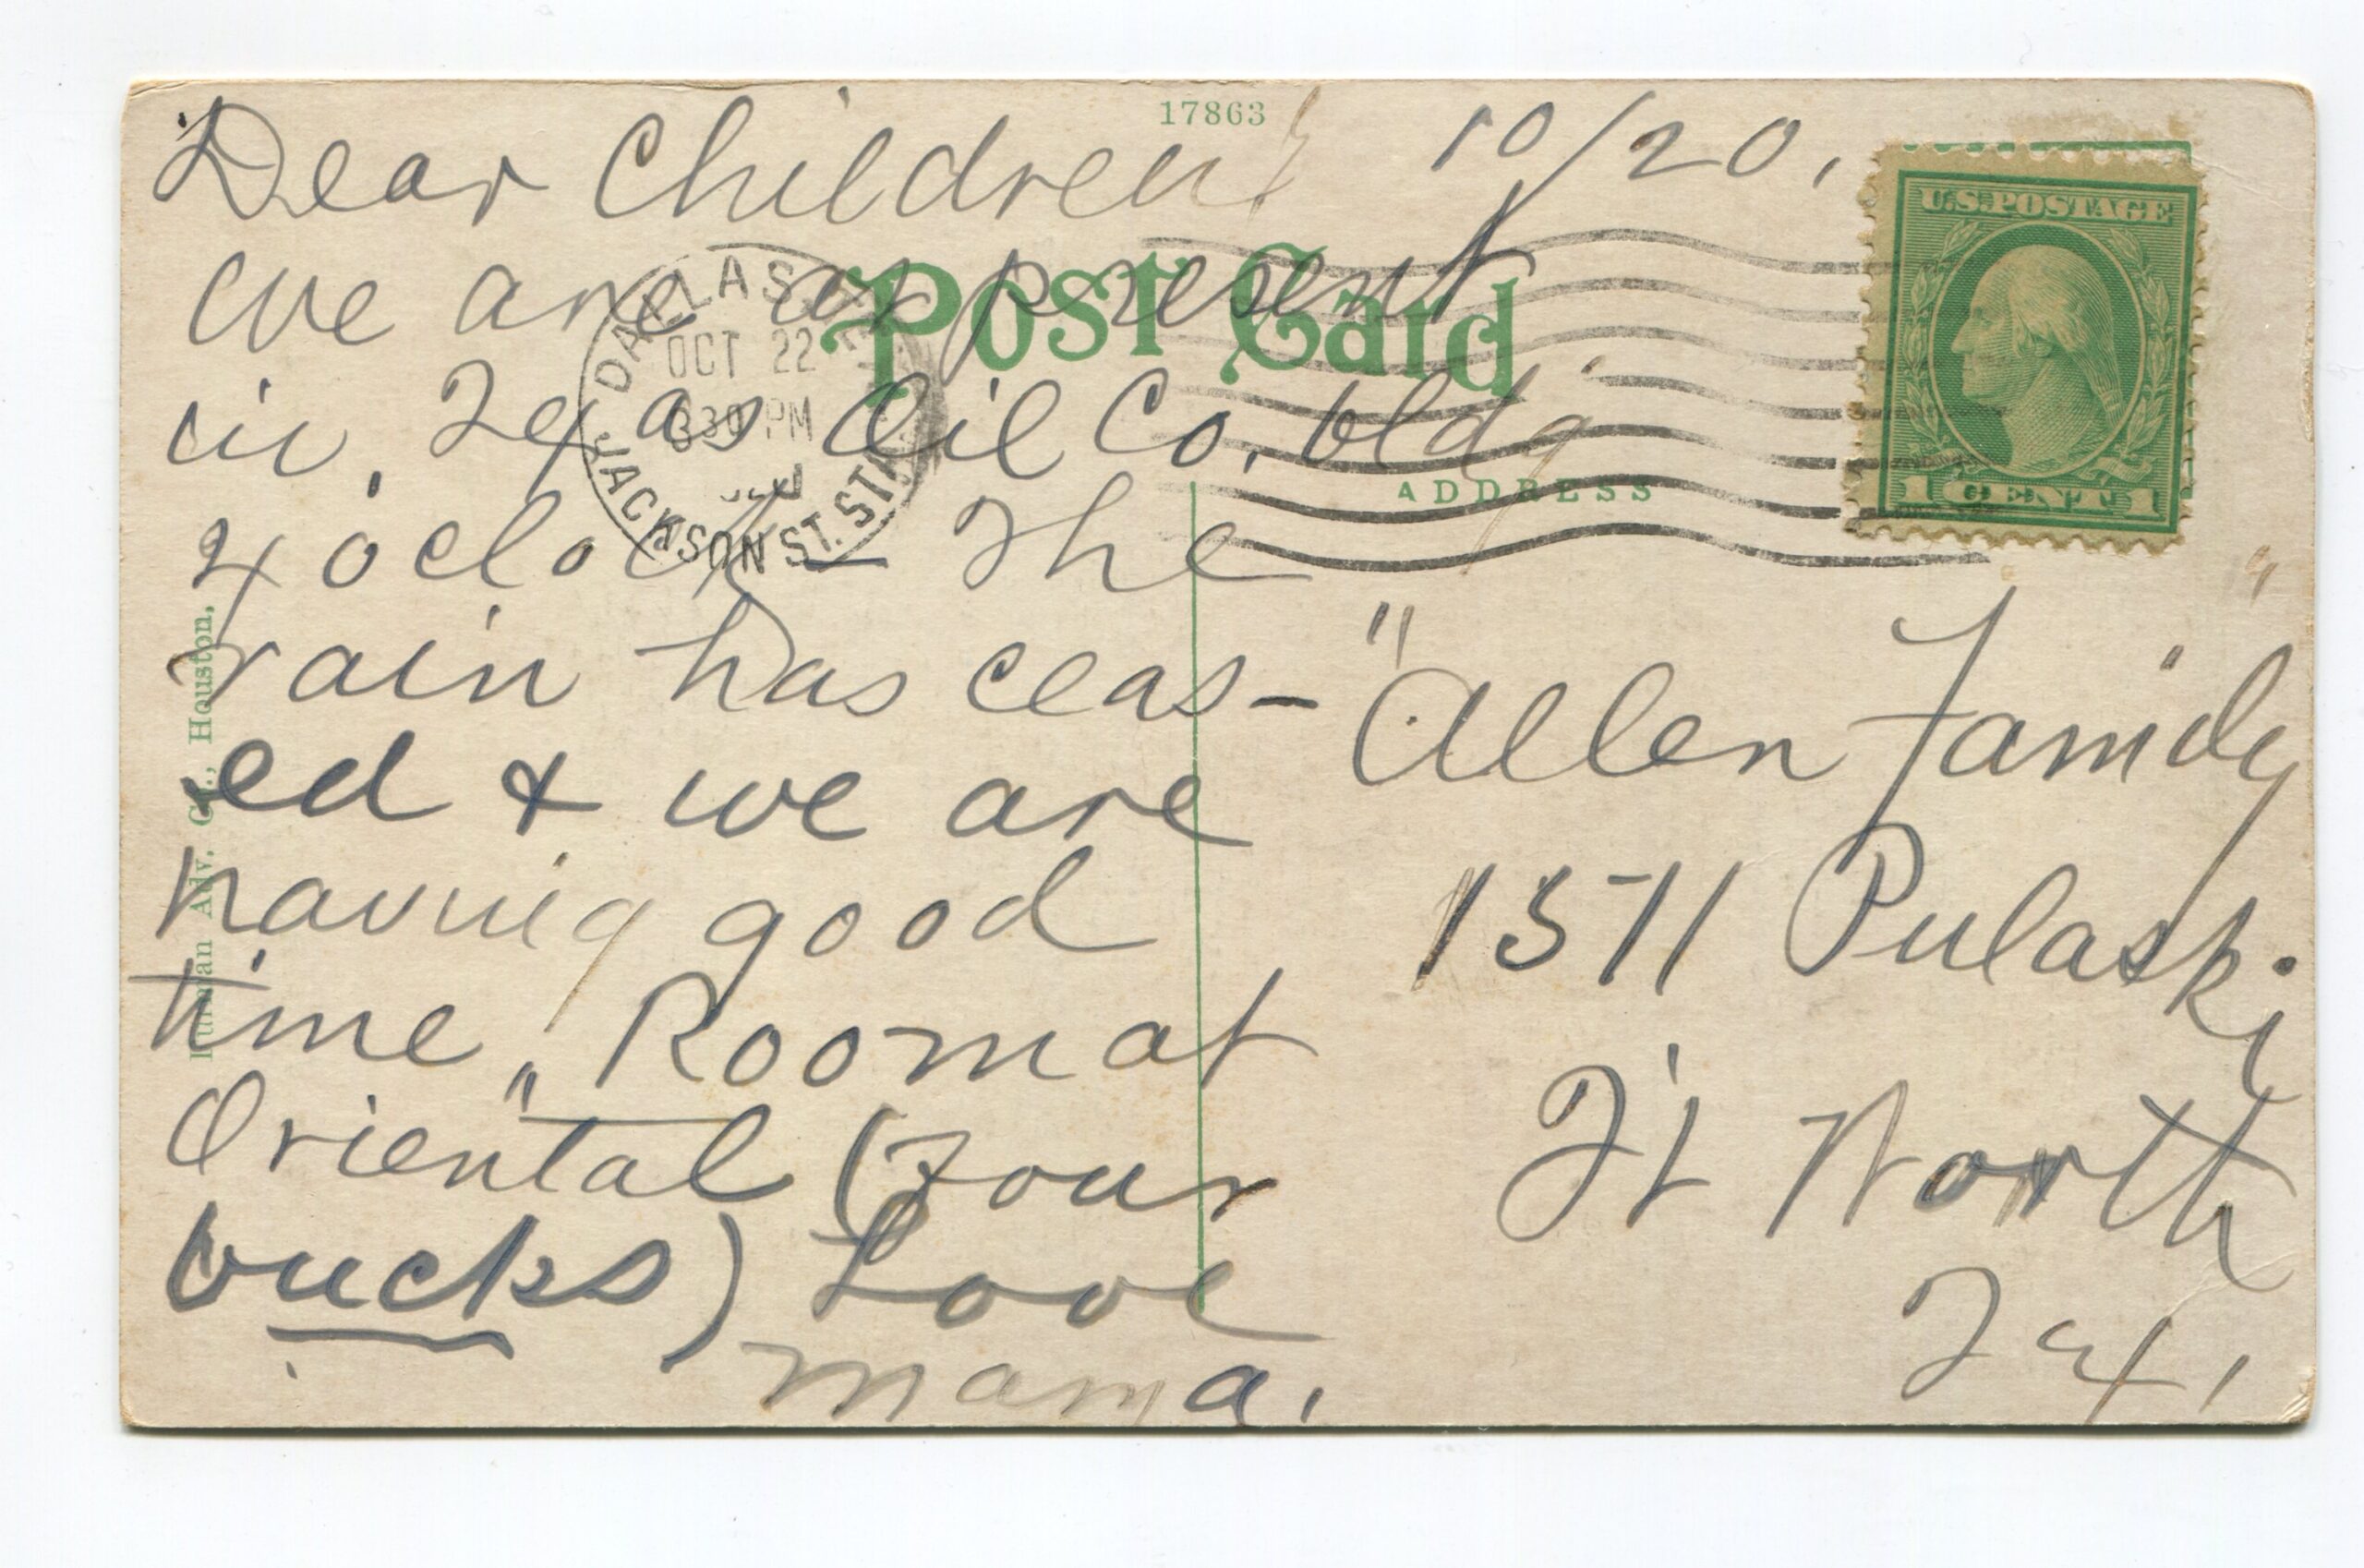 17863
Dear Children 10/20,
We are at present
in Texas Oil Co, bldg.
4 oclock — The
rain has ceas-
ed & we are
having good
time, Room at
Oriental (Four
bucks) Love
mama.
Post Card
ADDRESS
DALLAS, TEX.
OCT 22
630 PM
JACKSON ST. STA.
U.S. POSTAGE
1 CENT 1
"Allen Family"
1371 Pulaski
Ft Worth
Tex,
Adv. Co., Houston.